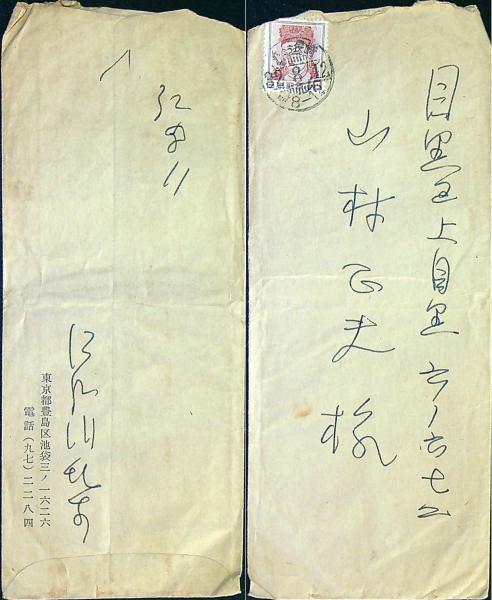 目黒区上目黒六ノ六七二
山村正夫様
江戸川乱歩
東京都豊島区池袋三ノ一六二六
電話（九七）二二八四